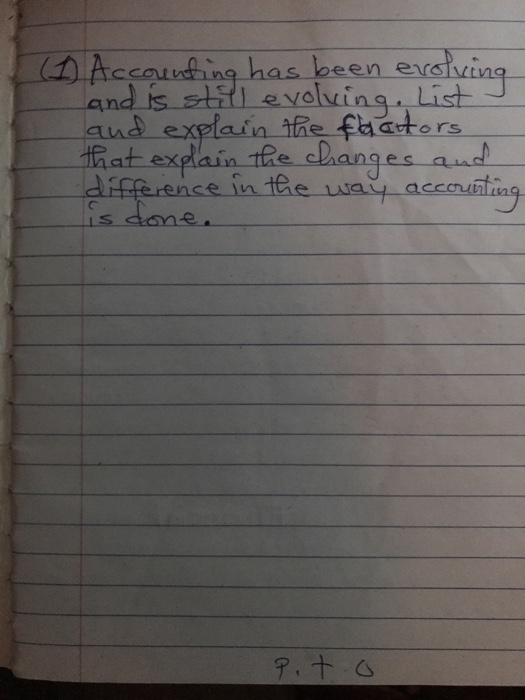 (1) Accounting has been evolving
and is still evolving. List
and explain the factors
that explain the changes and
difference in the way accounting
is done.
P. t. O